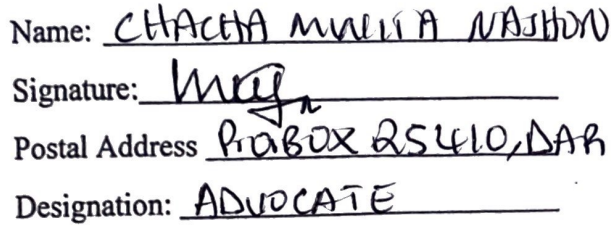 Name: CHACHA MWITA NASHON
Signature:
Postal Address P.O.BOX 25410, DAR
Designation: ADVOCATE